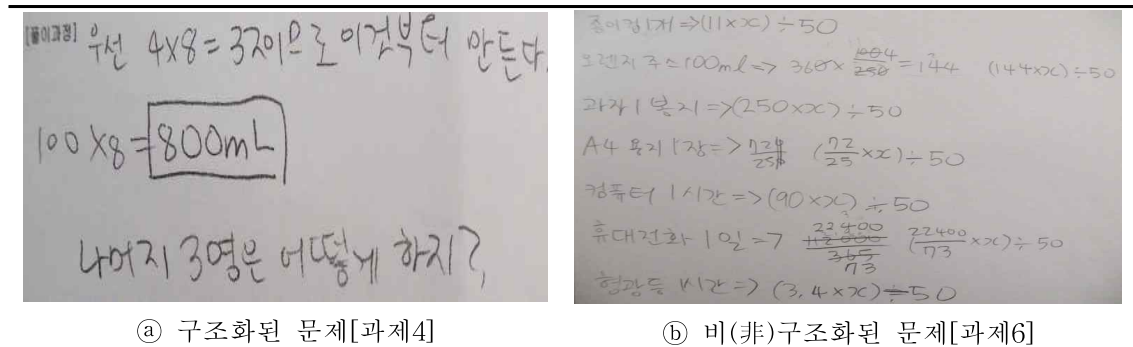 [풀이과정] 우선 4×8=32이므로 이것부터 만든다.
100×8=800mL
나머지 3명은 어떻게 하지?
ⓐ 구조화된 문제[과제4]
종이컵1개=>(11×x)÷50
오렌지 주스100ml=> 360×100/250=144 (144×x)÷50
과자 1봉지=>(250×x)÷50
A4 용지 1장=> (72/25×x)÷50
컴퓨터 1시간=>(90×x)÷50
휴대전화 1일=> 22400/73 (22400/73×x)÷50
형광등 1시간=> (3.4×x)÷50
ⓑ 비(非)구조화된 문제[과제6]